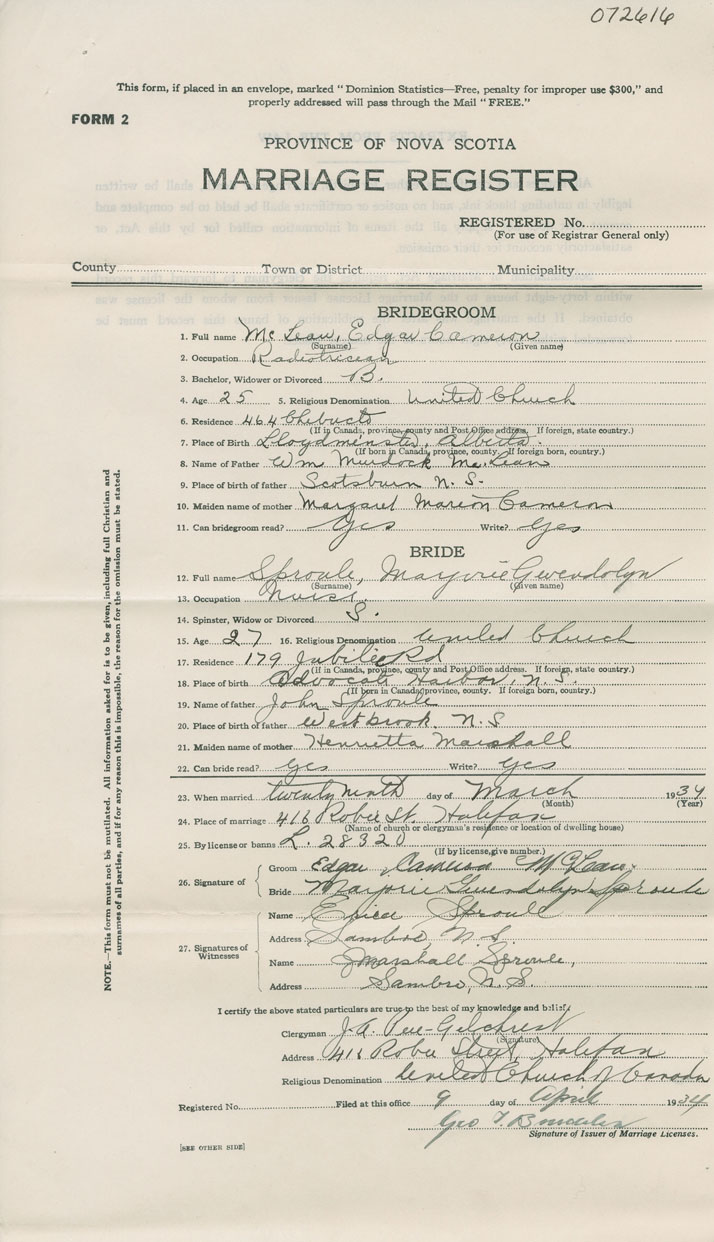 072616
This form, if placed in an envelope, marked "Dominion Statistics—Free, penalty for improper use $300," and
properly addressed will pass through the Mail "FREE."
FORM 2
PROVINCE OF NOVA SCOTIA
MARRIAGE REGISTER
REGISTERED No.
(For use of Registrar General only)
County Town or District Municipality
BRIDEGROOM
1. Full name McLean, Edgar Cameron
(Surname) (Given name)
2. Occupation Radiotrician
3. Bachelor, Widower or Divorced B.
4. Age 25 5. Religious Denomination United Church
6. Residence 464 Chebucto
(If in Canada, province, county and Post Office address. If foreign, state country.)
7. Place of Birth Lloydminster, Alberta.
(If born in Canada, province, county. If foreign born, country.)
8. Name of Father Wm Murdock McLean
9. Place of birth of father Scotsburn N. S.
10. Maiden name of mother Margaret Marion Cameron
11. Can bridegroom read? Yes Write? Yes
BRIDE
12. Full name Sproule, Marjorie Gwendolyn
(Surname) (Given name)
13. Occupation Nurse
14. Spinster, Widow or Divorced S.
15. Age 27 16. Religious Denomination United Church
17. Residence 179 Jubilee Rd
(If in Canada, province, county and Post Office address. If foreign, state country.)
18. Place of birth Advocate Harbor, N. S.
(If born in Canada, province, county. If foreign born, country.)
19. Name of father John Sproule
20. Place of birth of father Westbrook, N. S
21. Maiden name of mother Henrietta Marshall
22. Can bride read? Yes Write? Yes
23. When married twenty ninth day of March 1934
(Month) (Year)
24. Place of marriage 416 Robie St. Halifax
(Name of church or clergyman's residence or location of dwelling house)
25. By license or banns L. 28320
(If by license, give number.)
26. Signature of
Groom Edgar Cameron McLean
Bride Marjorie Gwendolyn Sproule
27. Signatures of Witnesses
Name Sproule
Address Sambro, N. S.
Name J Marshall Sproule,
Address Sambro, N. S.
I certify the above stated particulars are true to the best of my knowledge and belief
Clergyman J. A. Gilchrist
(Signature)
Address 416 Robie Street, Halifax
Religious Denomination United Church of Canada
Registered No. Filed at this office 9 day of April 1934
Geo T.
Signature of Issuer of Marriage Licenses.
[SEE OTHER SIDE]
NOTE.—This form must not be mutilated. All information asked for is to be given, including full Christian and
surnames of all parties, and if for any reason this is impossible, the reason for the omission must be stated.